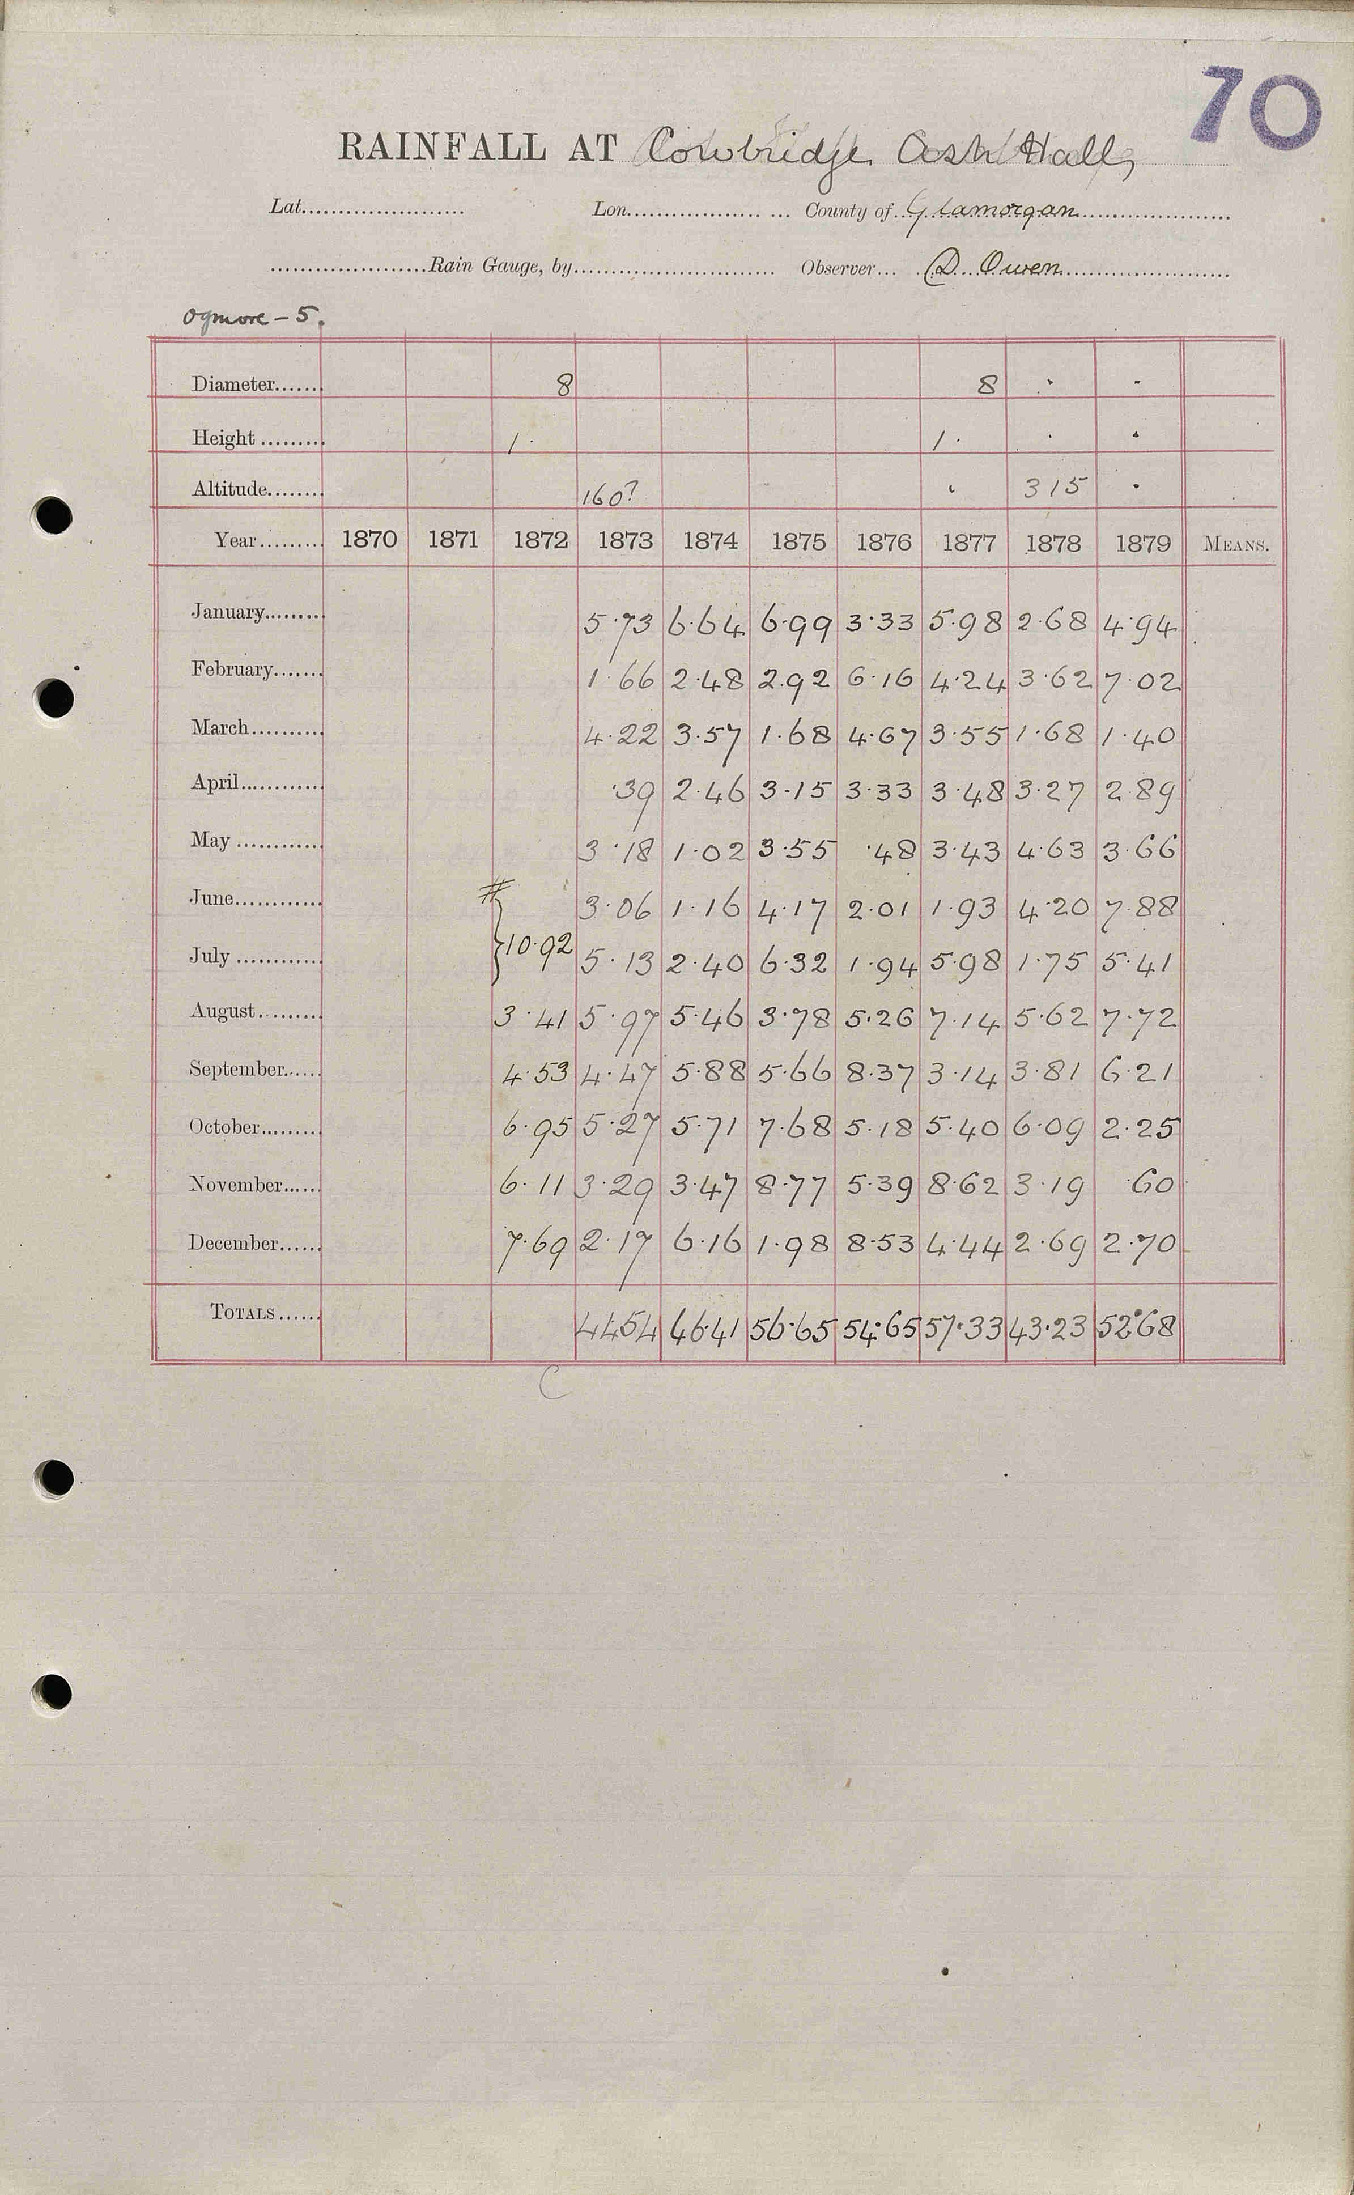 70
RAINFALL AT Cowbridge Ash Hall,
Lat. Lon. County of Glamorgan
Rain Gauge, by Observer D Owen
Ogmore - 5.
Diameter 8 8 · ·
Height 1· 1· · ·
Altitude 160? · 315 ·
Year 1870 1871 1872 1873 1874 1875 1876 1877 1878 1879 MEANS.
January 5·73 6·64 6·99 3·33 5·98 2·68 4·94
February 1·66 2·48 2.92 6·16 4·24 3·62 7·02
March 4·22 3·57 1·68 4·67 3·55 1·68 1·40
April ·39 2·46 3·15 3·33 3·48 3·27 2·89
May 3·18 1·02 3·55 ·48 3·43 4·63 3·66
June # 3·06 1·16 4·17 2·01 1·93 4·20 7·88
July }10·92 5·13 2·40 6·32 1·94 5·98 1·75 5·41
August 3·41 5·97 5·46 3·78 5·26 7·14 5·62 7·72
September 4·53 4·47 5·88 5·66 8·37 3·14 3·81 6·21
October 6·95 5·27 5·71 7·68 5·18 5·40 6·09 2·25
November 6·11 3·29 3·47 8·77 5·39 8·62 3·19 ·60
December 7·69 2·17 6·16 1·98 8·53 4·44 2·69 2·70
TOTALS 4454 46·41 56·65 54·65 57·33 43·23 52·68
C